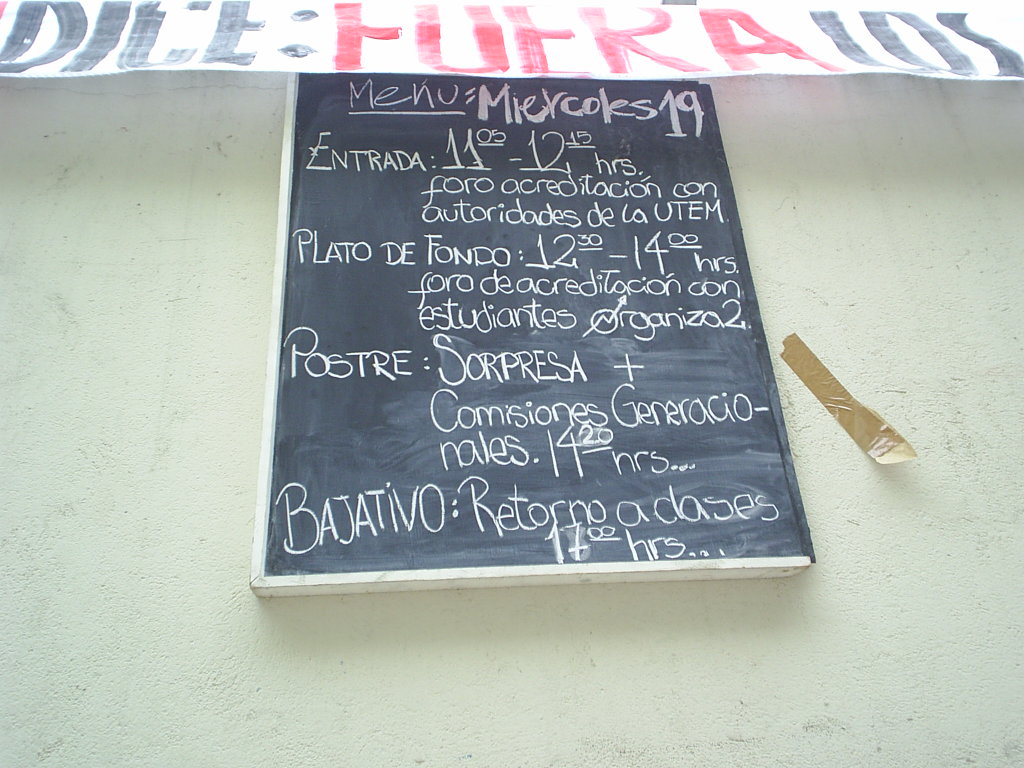 DICE: FUERA LOS
Menú: Miercoles 19
ENTRADA: 11 05 - 12 15 hrs.
foro acreditación con
autoridades de la UTEM.
PLATO DE FONDO: 12 30 - 14 00 hrs.
foro de acreditación con
estudiantes Organiza2.
POSTRE: SORPRESA +
Comisiones Generacio-
nales. 14 20 hrs...
BAJATIVO: Retorno a clases
17 00 hrs...